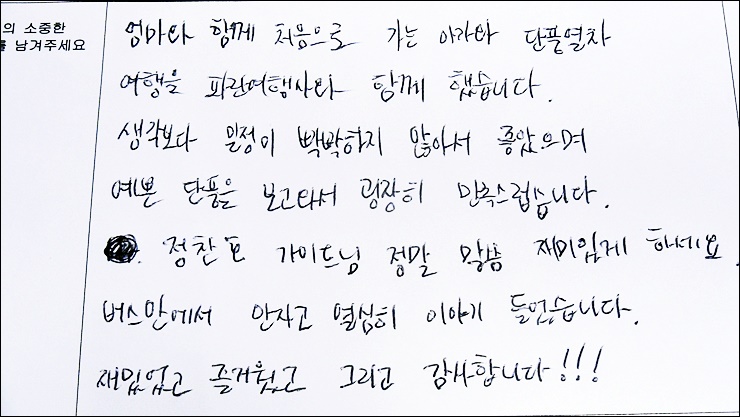 의 소중한
를 남겨주세요
엄마와 함께 처음으로 가는 야가와 단풍열차
여행을 파란여행사와 함께 했습니다.
생각보다 일정이 빡빡하지 않아서 좋았으며
예쁜 단풍을 보고와서 굉장히 만족스럽습니다.
정찬호 가이드님 정말 말씀 재미있게 하세요.
버스안에서 안자고 열심히 이야기 들었습니다.
재밌었고 즐거웠고 그리고 감사합니다!!!